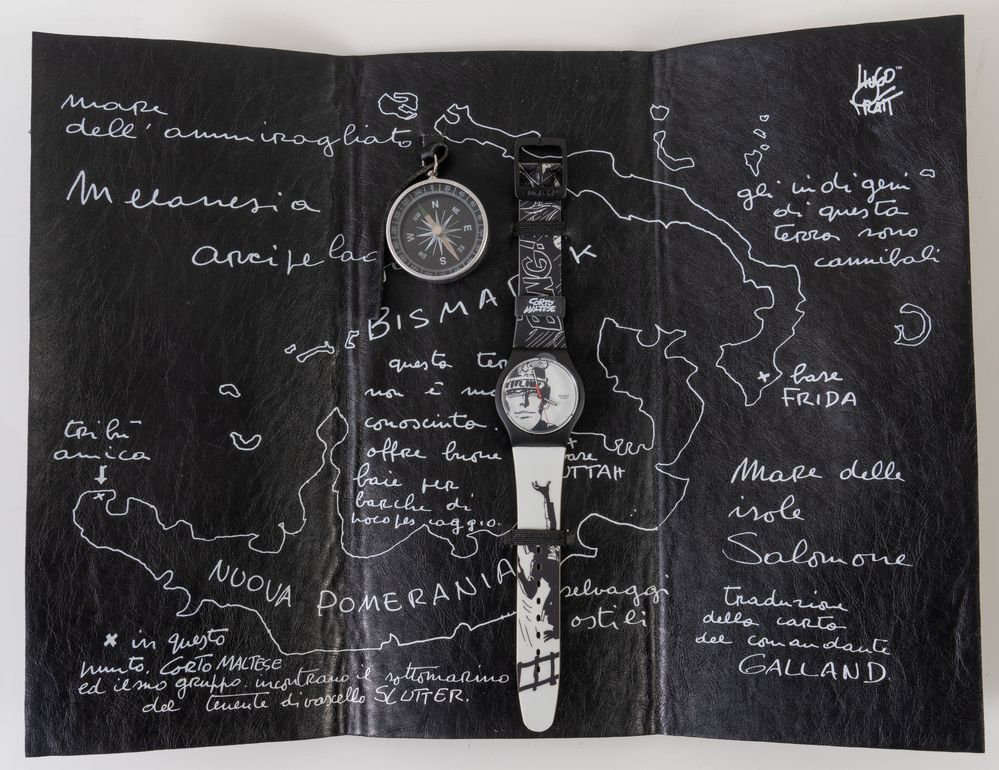 HUGO
PRATT™
mare
dell'ammiragliato
Melanesia
arcipelag
BISMA K
gli indigeni
di questa
terra sono
cannibali
N
NE
E
SE
S
SW
W
NW
BANG!
CORTO
MALTESE
questa ter
non è m
conosciuta.
offre buone
baie per
barche di
poco pescaggio.
base
FRIDA
tribù
amica
UTTAH
Mare delle
isole
Salomone
NUOVA POMERANIA
selvaggi
ostili
traduzione
della carta
del comandante
GALLAND.
x in questo
punto, CORTO MALTESE
ed il suo gruppo, incontrano il sottomarino
del tenente di vascello SLUTTER.